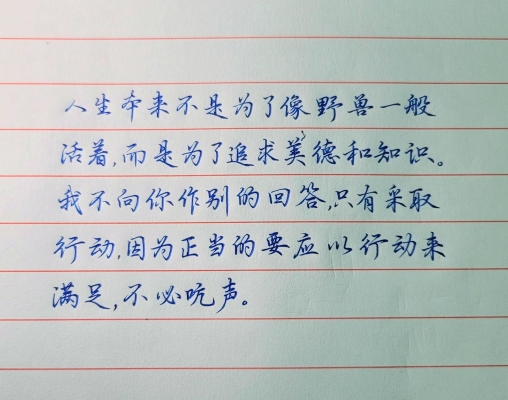 人生本来不是为了像野兽一般
活着,而是为了追求美德和知识。
我不向你作别的回答,只有采取
行动,因为正当的要应以行动来
满足,不必吭声。